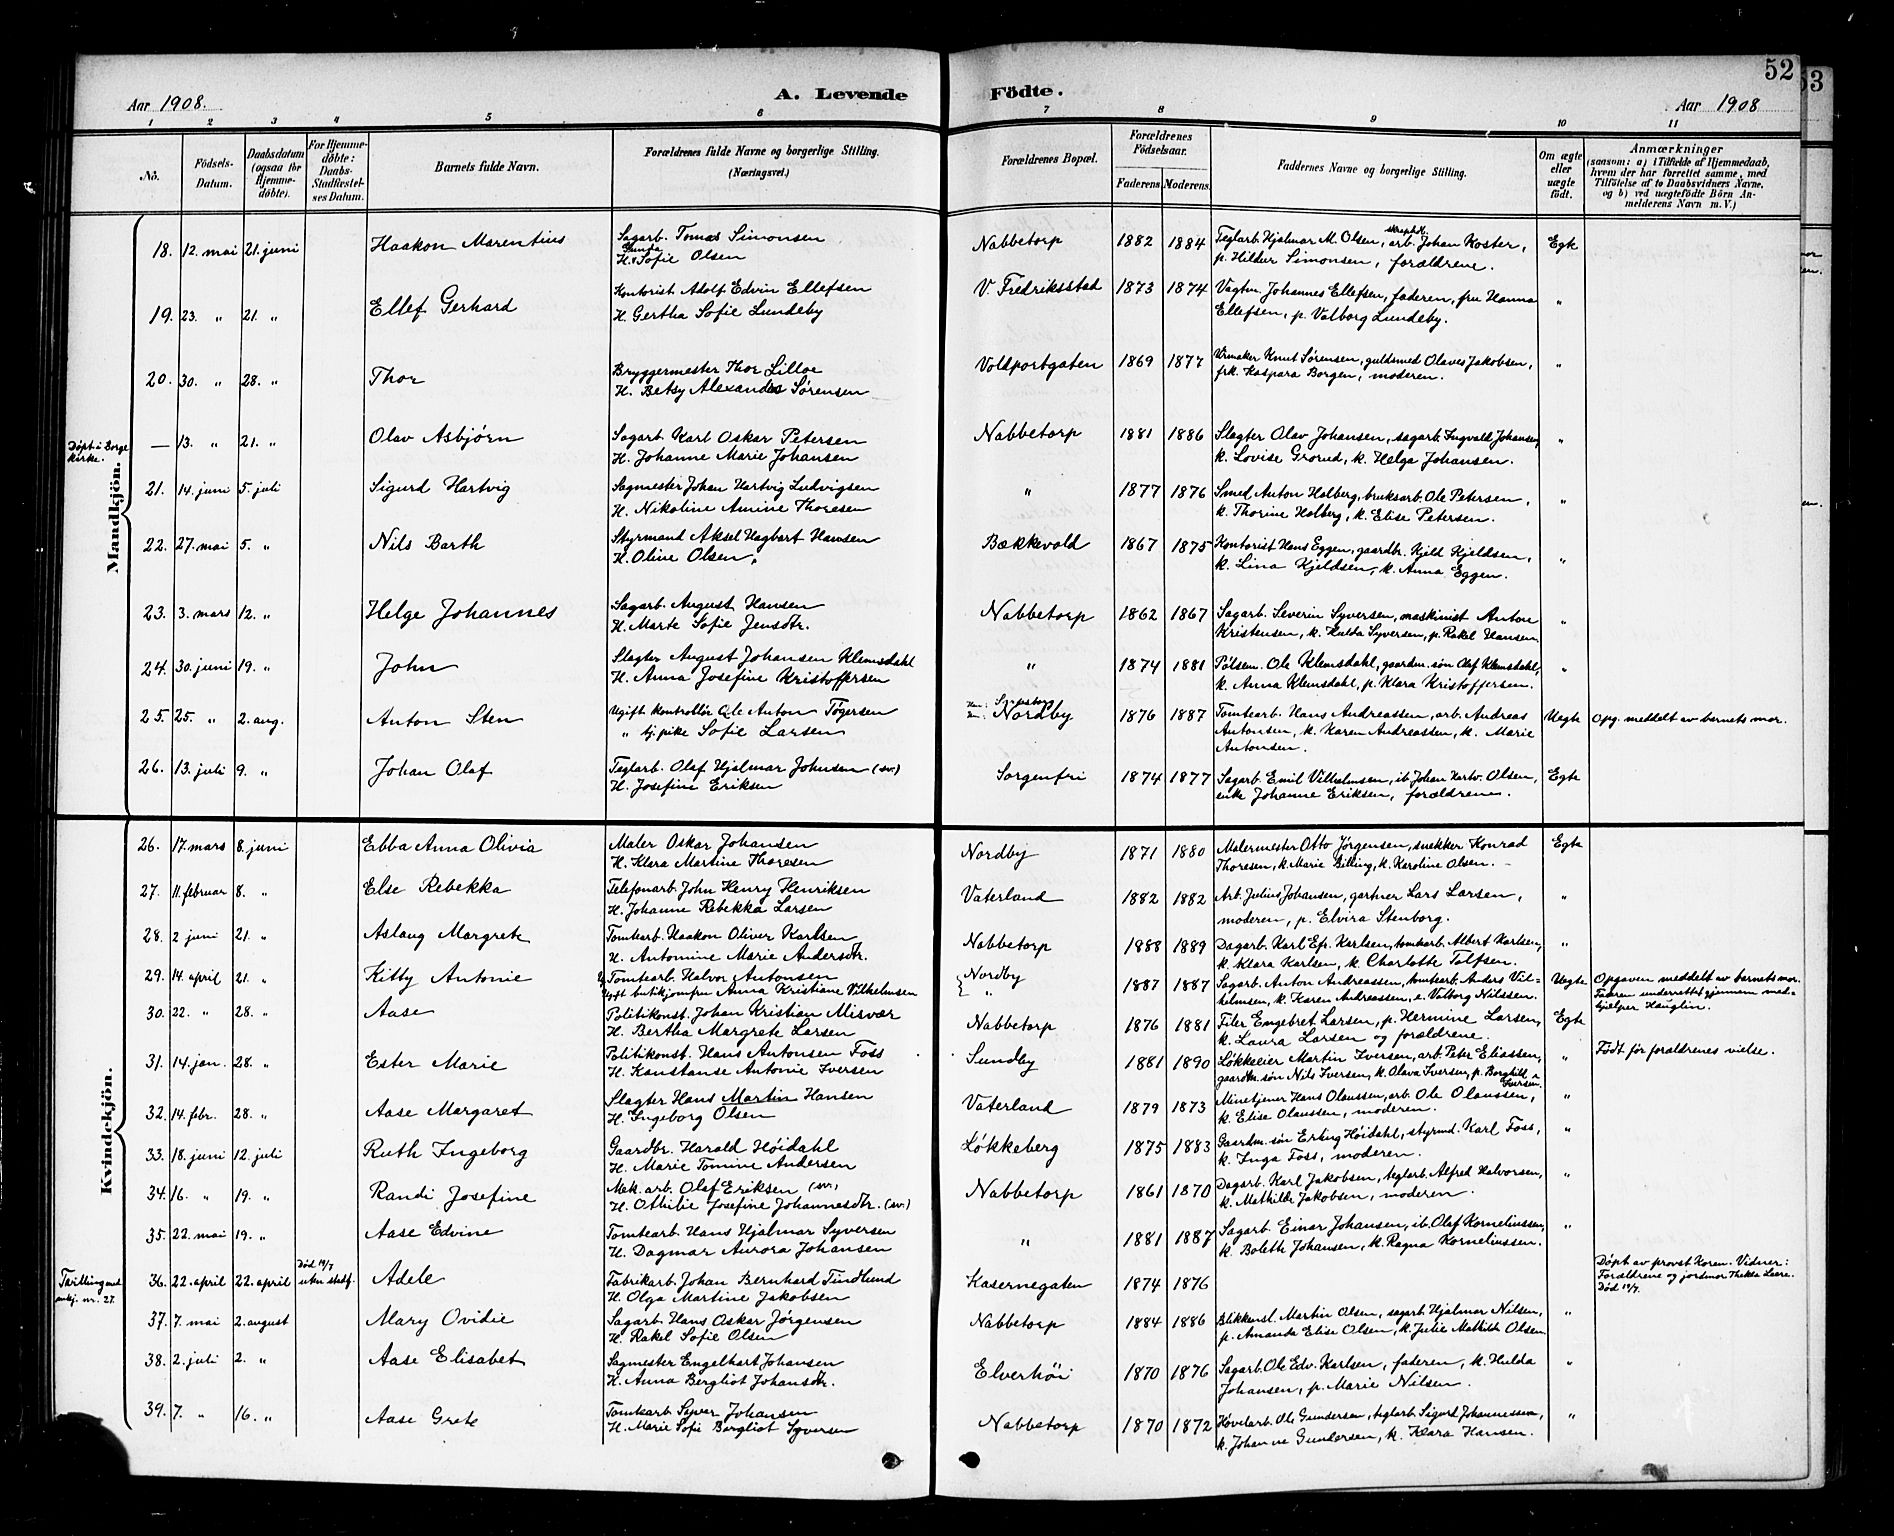 52
53
Aar 1908.
A. Levende
Födte.
Aar 1908
1 2 3 4 5 6 7 8 9 10 11
No.
Födsels-Datum.
Daabsdatum (ogsaa for Hjemme-döbte).
For Hjemme-döbte: Daabs-Stadfæstel-ses Datum.
Barnets fulde Navn.
Forældrenes fulde Navne og borgerlige Stilling.
(Næringsvei.)
Forældrenes Bopæl.
Forældrenes Födselsaar.
Faderens Moderens.
Faddernes Navne og borgerlige Stilling.
Om ægte eller uægte födt.
Anmærkninger
(saasom: a) i Tilfælde af Hjemmedaab, hvem der har forrettet samme, med Tilföielse af to Daabsvidners Navne, og b) ved uægtefödte Börn An-melderens Navn m. V.)
Mandkjön.
18. 12. mai 21. juni Haakon Marentius Sagarb. Tomas Simonsen Nabbetorp 1882 1884 Teglarb. Hjalmar M. Olsen, arb. Johan Koster, Egte
H. Gunda Sofie Olsen p. Hildur Simonsen, forældrene.
19. 23. " 21. " Ellef Gerhard Kontorist Adolf Edvin Ellefsen V. Fredriksstad 1873 1874 Vagtm. Johannes Ellefsen, faderen, fru Hanna "
H. Gertha Sofie Lundeby Ellefsen, p. Valborg Lundeby.
20. 30. " 28. " Thor Bryggermester Thor Lilloe Voldportgaten 1869 1877 Urmaker Knut Sørensen, guldsmed Olaves Jakobsen, "
H. Betsy Alexandra Sørensen frk. Kaspara Borgen, moderen.
Døpt i Borge kirke. — 13. " 21. " Olav Asbjørn Sagarb. Karl Oskar Petersen Nabbetorp 1881 1886 Slagter Olav Johansen, sagarb. Ingvald Johansen, "
H. Johanne Marie Johansen k. Lovise Grorud, k. Helga Johansen.
21. 14. juni 5. juli Sigurd Hartvig Sagmester Johan Hartvig Ludvigsen " 1877 1876 Smed Anton Holberg, bruksarb. Ole Petersen, "
H. Nikoline Amine Thoresen k. Thorine Holberg, k. Elise Petersen.
22. 27. mai 5. " Nils Barth Styrmand Aksel Hagbart Hansen Bækkevold 1867 1875 Kontorist Hans Eggen, gaardbr. Kjeld Kjeldsen, "
H. Oline Olsen, k. Lina Kjeldsen, k. Anna Eggen.
23. 3. mars 12. " Helge Johannes Sagarb. August Hansen Nabbetorp 1862 1867 Sagarb. Severin Syversen, maskinist Anton "
H. Marte Sofie Jensdtr. Kristensen, k. Hulda Syversen, p. Rakel Hansen.
24. 30. juni 19. " John Slagter August Johansen Klemsdahl " 1874 1881 Pølsem. Ole Klemsdahl, gaardm. søn Olaf Klemsdahl, "
H. Anna Josefine Kristoffersen k. Anna Klemsdahl, p. Klara Kristoffersen.
25. 25. " 2. aug. Anton Sten Ugift kontrollør Ole Anton Tøgersen Nordby 1876 1887 Tomtearb. Hans Andreassen, arb. Andreas Uegte Opg. meddelt av barnets mor.
" tj. pike Sofie Larsen Antonsen, k. Karen Andreassen, k. Marie
Antonsen.
26. 13. juli 9. " Johan Olaf Teglarb. Olaf Hjalmar Johnsen (sv.) Sorgenfri 1874 1877 Sagarb. Emil Vilhelmsen, ib. Johan Hartv. Olsen, Egte
H. Josefine Eriksen enke Johanne Eriksen, forældrene.
Kvindekjön.
26. 17. mars 8. juni Ebba Anna Olivia Maler Oskar Johansen Nordby 1871 1880 Malermester Otto Jørgensen, snekker Konrad Egte
H. Klara Martine Thoresen Thoresen, k. Marie Billing, k. Karoline Olsen.
27. 11. februar 8. " Else Rebekka Telefonarb. John Henry Henriksen Vaterland 1882 1882 Arb. Julius Johansen, gartner Lars Larsen, "
H. Johanne Rebekka Larsen moderen, p. Elvira Stenborg.
28. 2 juni 21. " Aslaug Margrete Tomtearb. Haakon Oliver Karlsen Nabbetorp 1888 1889 Dagarb. Karl Efr. Karlsen, tomtearb. Albert Karlsen, "
H. Antonine Marie Andersdtr. k. Klara Karlsen, k. Charlotte Tolfsen.
29. 14. april 21. " Kitty Antonie Tomtearb. Halvor Antonsen Nordby 1887 1887 Sagarb. Anton Andreassen, tomtearb. Anders Vil- Uegte Opgaven meddelt av barnets mor.
Ugift butikjomfru Anna Kristiane Vilhelmsen " helmsen, k. Karen Andreassen, e. Valborg Nilssen. Faderen underrettet gjennem med-
hjælper Hauglin.
30. 22. " 28. " Aase Politikonst. Johan Kristian Misvær Nabbetorp 1876 1881 Filer Engebret Larsen, p. Hermine Larsen, Egte
H. Bertha Margrete Larsen k. Laura Larsen og forældrene.
31. 14. jan. 28. " Ester Marie Politikonst. Hans Antonsen Foss Sundby 1881 1890 Løkkeeier Martin Iversen, arb. Peter Eliassen, " Født før forældrenes vielse.
H. Konstanse Antonie Iversen gaardm. søn Nils Iversen, k. Olava Iversen, p. Borghild Iversen.
32. 14. febr. 28. " Aase Margaret Slagter Hans Martin Hansen Vaterland 1879 1873 Minetjener Hans Olaussen, arb. Ole Olaussen, "
H. Ingeborg Olsen k. Elise Olaussen, moderen.
33. 18. juni 12. juli Ruth Ingeborg Gaardbr. Harald Høidahl Løkkeberg 1875 1883 Gaardm. søn Erling Høidahl, styrmd. Karl Foss, "
H. Marie Tomine Andersen k. Inga Foss, moderen.
34. 16. " 19. " Randi Josefine Mek. arb. Olaf Eriksen (sv.) Nabbetorp 1861 1870 Dagarb. Karl Jakobsen, teglarb. Alfred Halvorsen, "
H. Othilie Josefine Johannesdtr. (sv.) k. Mathilde Jakobsen, moderen.
35. 22. mai 19. " Aase Edvine Tomtearb. Hans Hjalmar Syversen " 1881 1887 Sagarb. Einar Johansen, ib. Olaf Korneliussen, "
H. Dagmar Aurora Johansen k. Boleth Johansen, k. Ragna Kornelinssen.
Tvilling med mkj. nr. 27. 36. 22. april 22. april Død 14/7 uten stadf. Adele Fabrikarb. Johan Bernhard Tindlund Kasernegaten 1874 1876 Døpt av provst Koren. Vidner:
H. Olga Martine Jakobsen Forældrene og jordmor Thekla Leere.
Død 14/7.
37. 7. mai 2. august Mary Ovidie Sagarb. Hans Oskar Jørgensen Nabbetorp 1884 1886 Blikkensl. Martin Olsen, sagarb. Hjalmar Nilsen, "
H. Rakel Sofie Olsen p. Amanda Elise Olsen, k. Julie Mathilde Olsen.
38. 2. juli 2. " Aase Elisabet Sagmester Engelhart Johansen Elverhöi 1870 1876 Sagarb. Ole Edv. Karlsen, faderen, k. Hulda "
H. Anna Bergliot Johansdtr. Johansen, p. Marie Nilsen.
39. 7. " 16. " Aase Grete Tomtearb. Syver Johansen Nabbetorp 1870 1872 Høvelarb. Ole Gundersen, teglarb. Sigurd Johannessen, "
H. Marie Sofie Bergliot Syversen k. Johanne Gundersen, k. Klara Hansen.